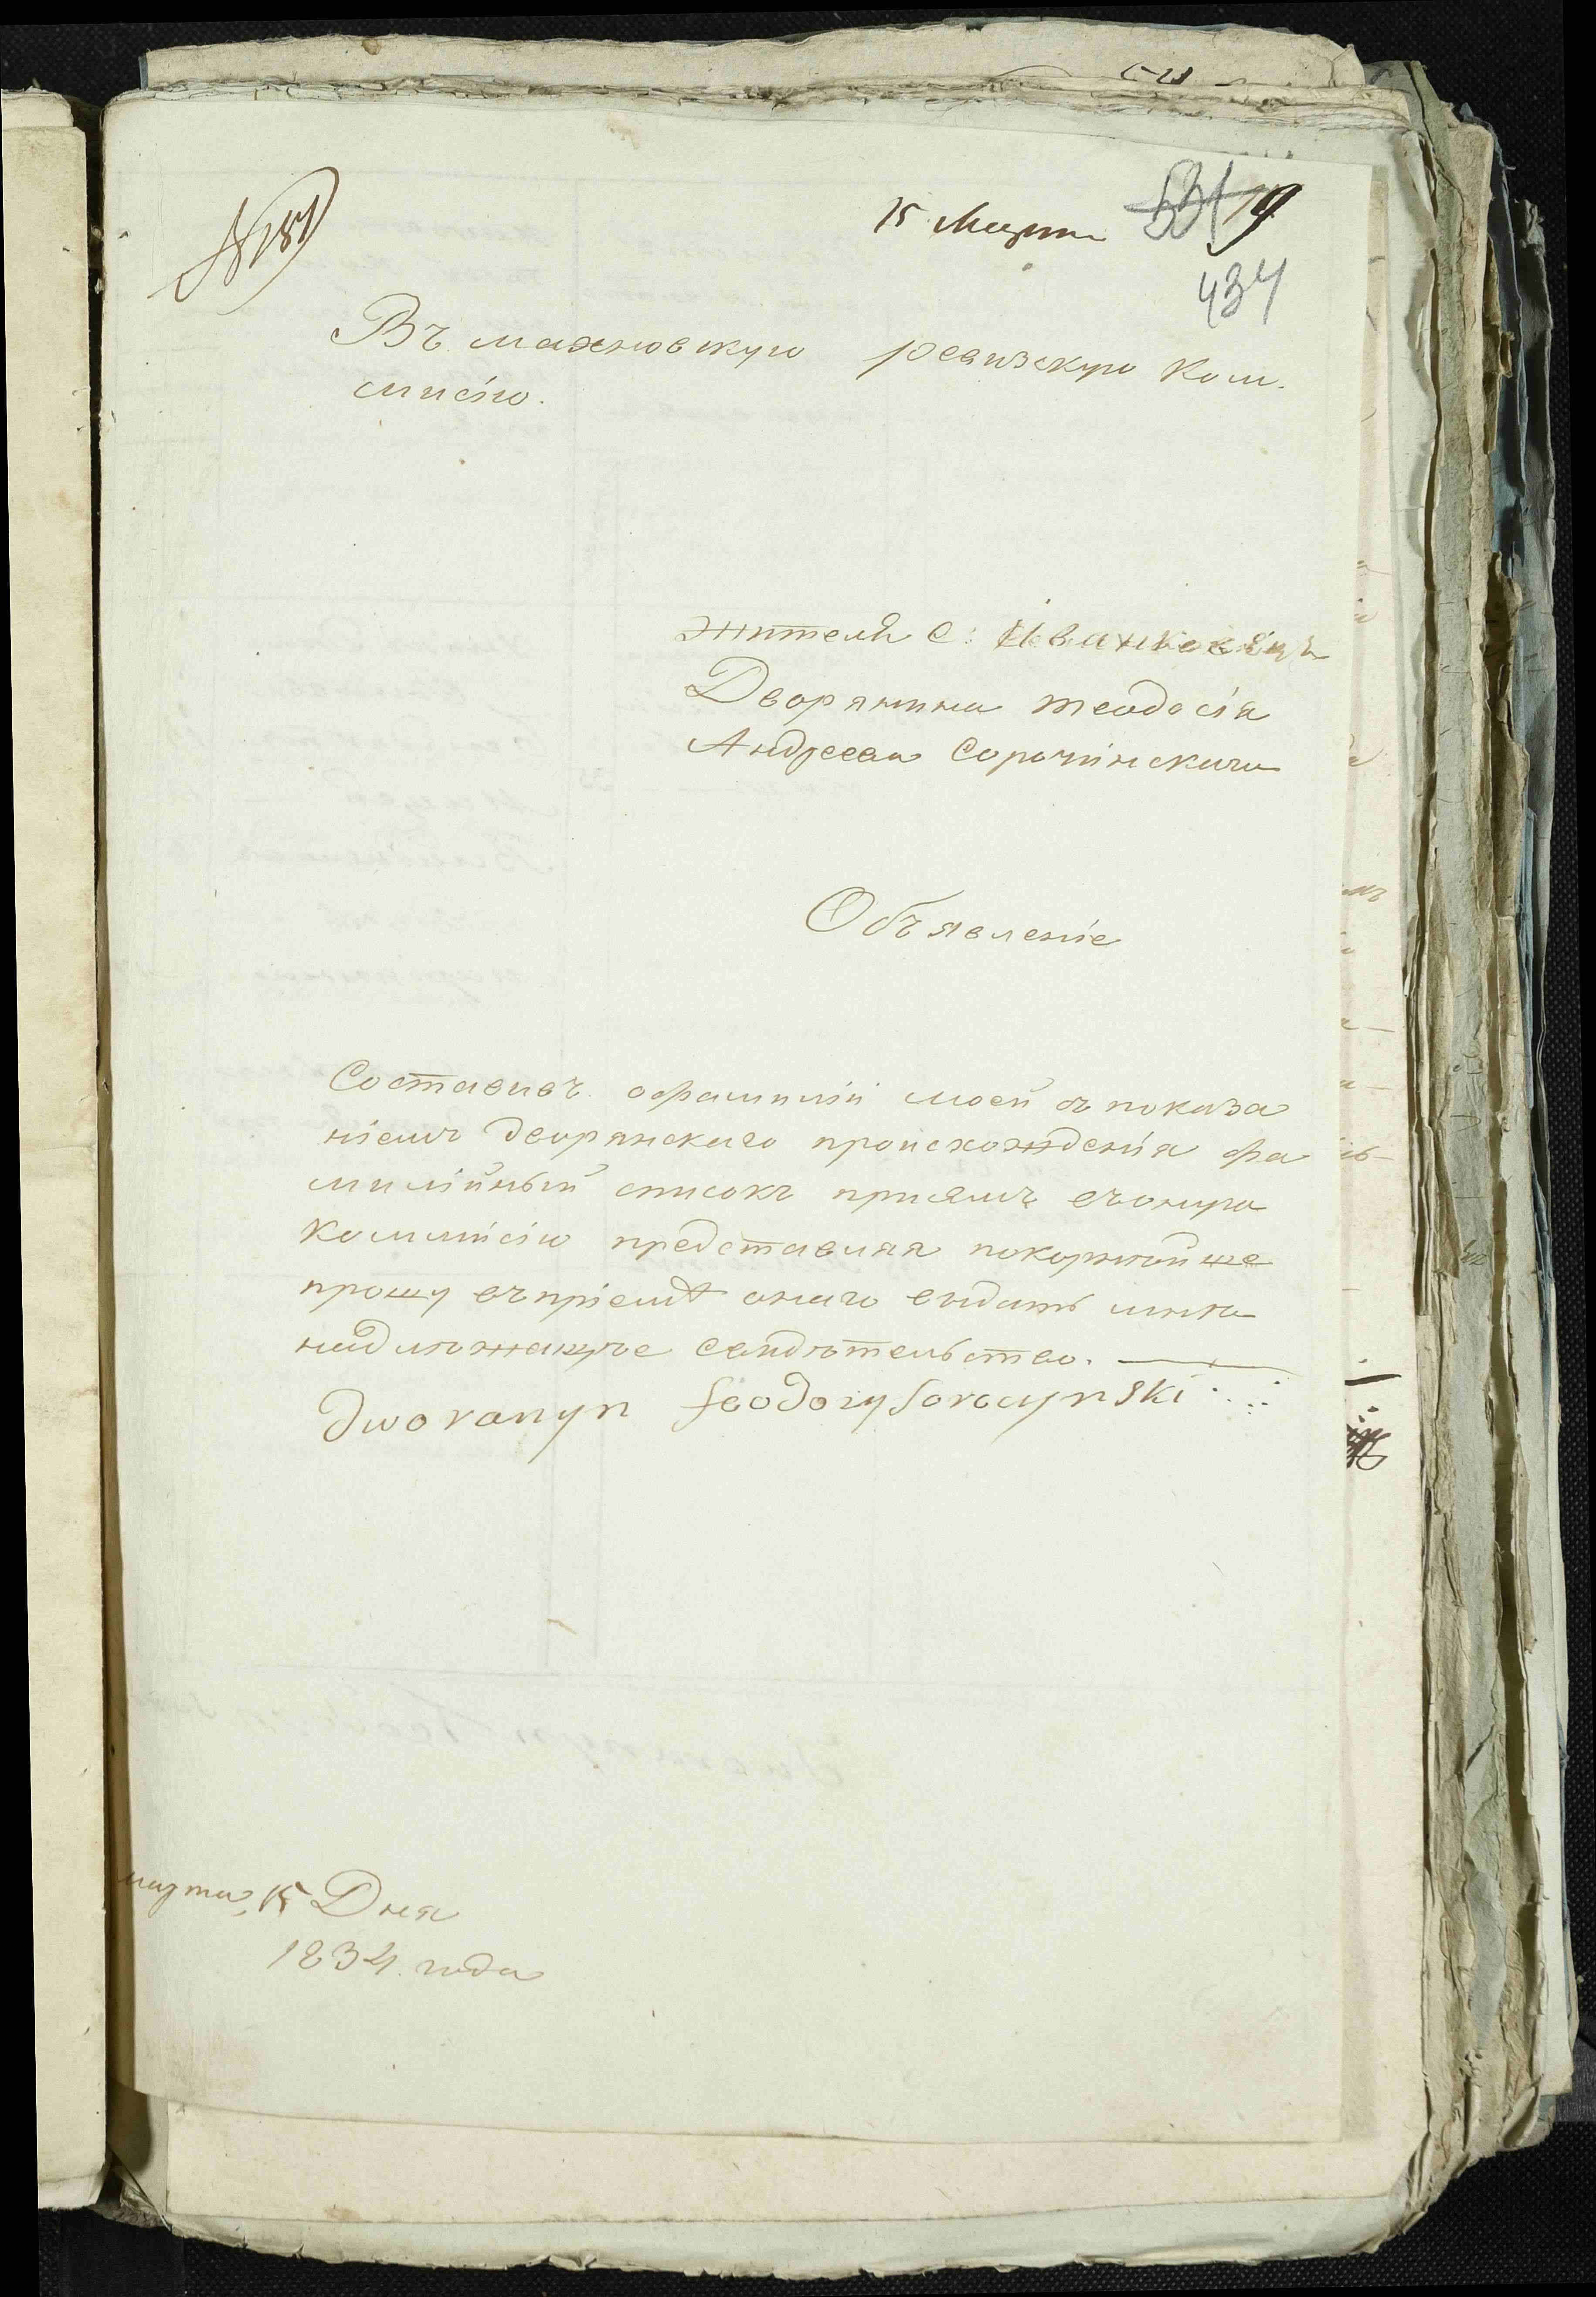 № 181
15 Марта
531 79
434
Въ махновскую ревизскую Ком.
мисію.
жителя с: Иванковецъ
Дворянина теодосія
Андреева Сорочинскаго
Объявленіе
Составивъ офамиліи моей съ показа
ніемъ дворянскаго происхожденія фа
милійный списокъ присямъ въонную
Коммисію представляя покорнѣйше
прошу въпріемѣ онаго выдать мнѣ
надлежащее свидѣтельство.
Dworanyn feodozy Soroczynski
марта, 15 Дня
1834 года